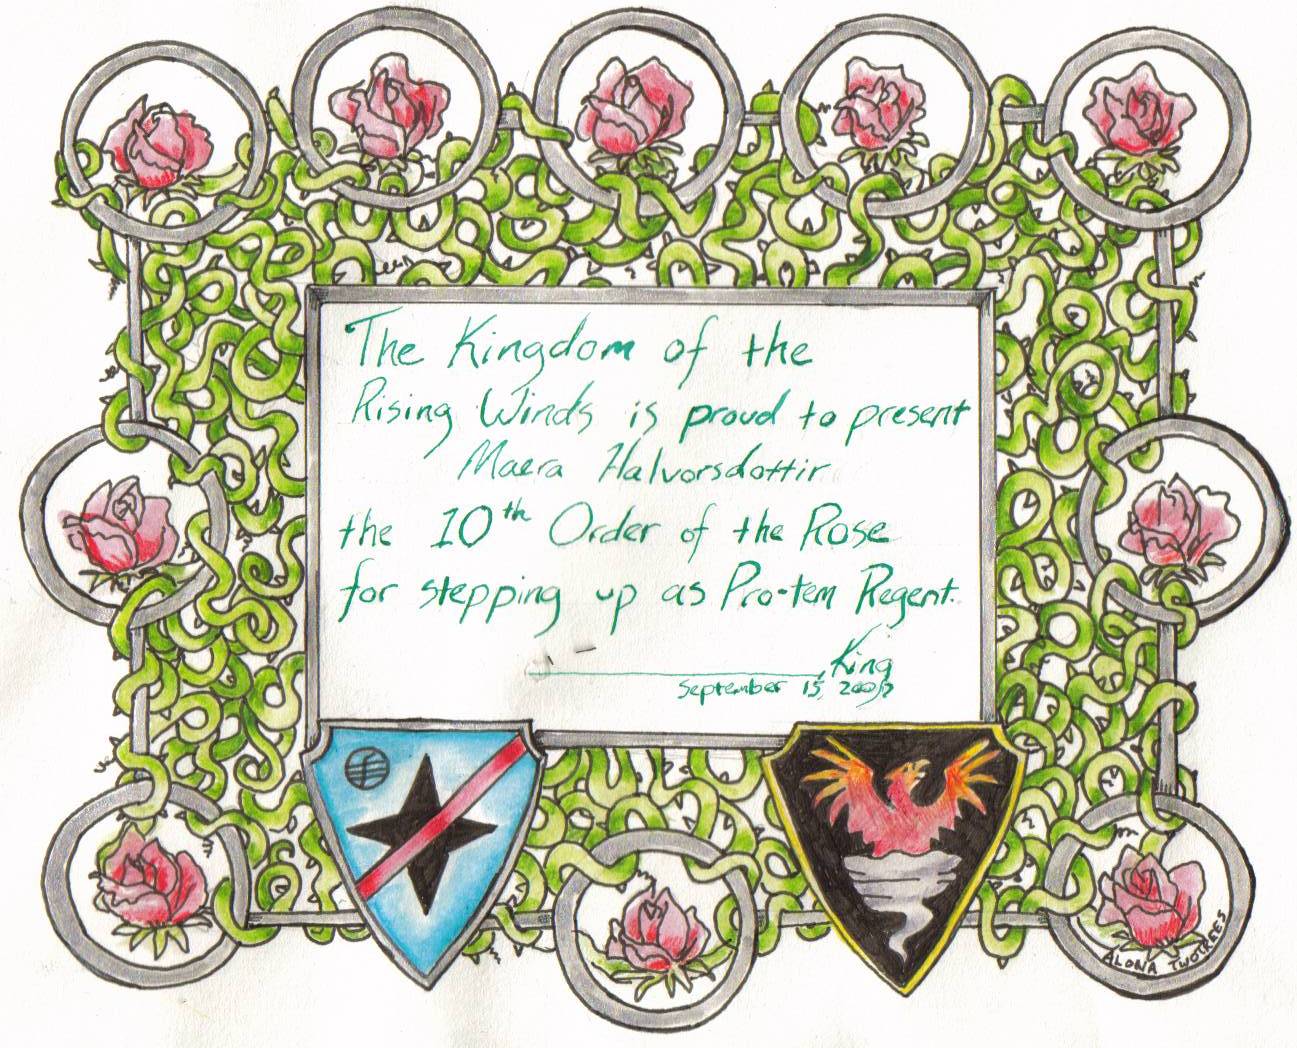 The Kingdom of the
Rising Winds is proud to present
Maera Halvorsdottir
the 10th Order of the Rose
for stepping up as Pro-tem Regent.
, King
September 15,
ALONA TWOTREES